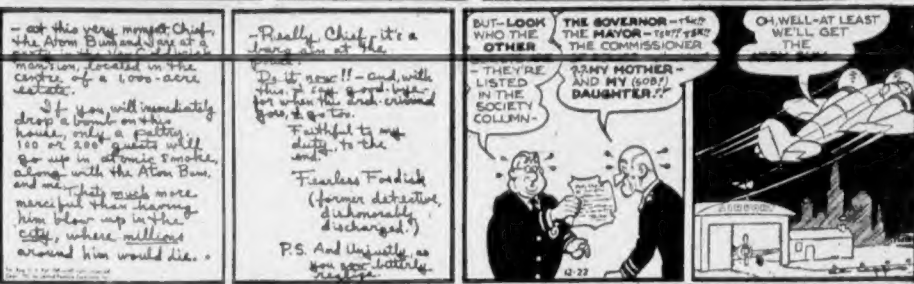 - at this very moment, Chief,
the Atom Bum and I are at a
mansion, located in the
centre of a 1,000-acre
estate.
If you will immediately
drop a bomb on this
house, only a paltry
100 or 200 guests will
go up in atomic smoke,
along with the Atom Bum,
and me. That's much more
merciful than having
him blow up in the
city, where millions
around him would die. -
-Really, Chief - it's a
bargain at the
Do it now!! - and, with
this, I say good-bye -
for when this arch-criminal
goes, I go too.
Faithful to my
duty, to the
end.
Fearless Fosdick
(former detective,
dishonorably
discharged.)
P.S. And unjustly, as
you now bitterly
realize.
BUT-LOOK
WHO THE
OTHER
- THEY'RE
LISTED
IN THE
SOCIETY
COLUMN-
THE GOVERNOR-TSK!!
THE MAYOR-TSK!! TSK!!
THE COMMISSIONER
??MY MOTHER-
AND MY (SOB!)
DAUGHTER!!
12-22
OH, WELL-AT LEAST
WE'LL GET
THE
AIRPORT